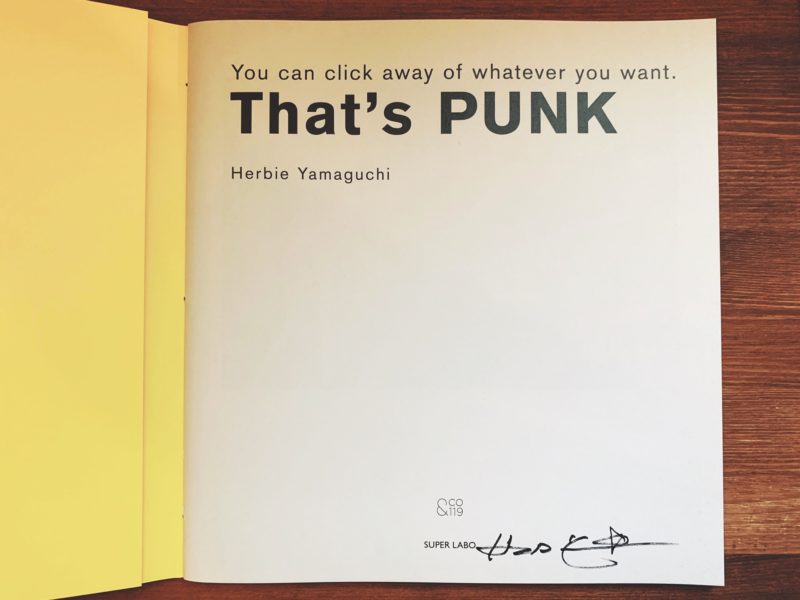 You can click away of whatever you want.
That's PUNK
Herbie Yamaguchi
&CO
119
SUPER LABO